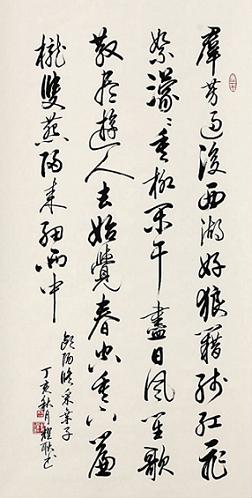 羣芳過後西湖好狼籍残紅飛
絮濛々垂柳闌干盡日風笙歌
散盡遊人去始覺春空垂下簾
櫳雙燕歸來細雨中
歐陽脩采桑子
丁亥秋月